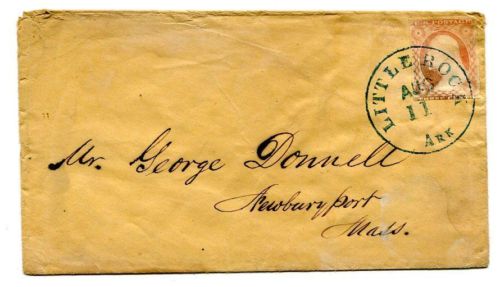 U.S. POSTAGE
LITTLE ROCK
AUG
11
ARK
Mr. George Donnell
Newburyport
Mass.